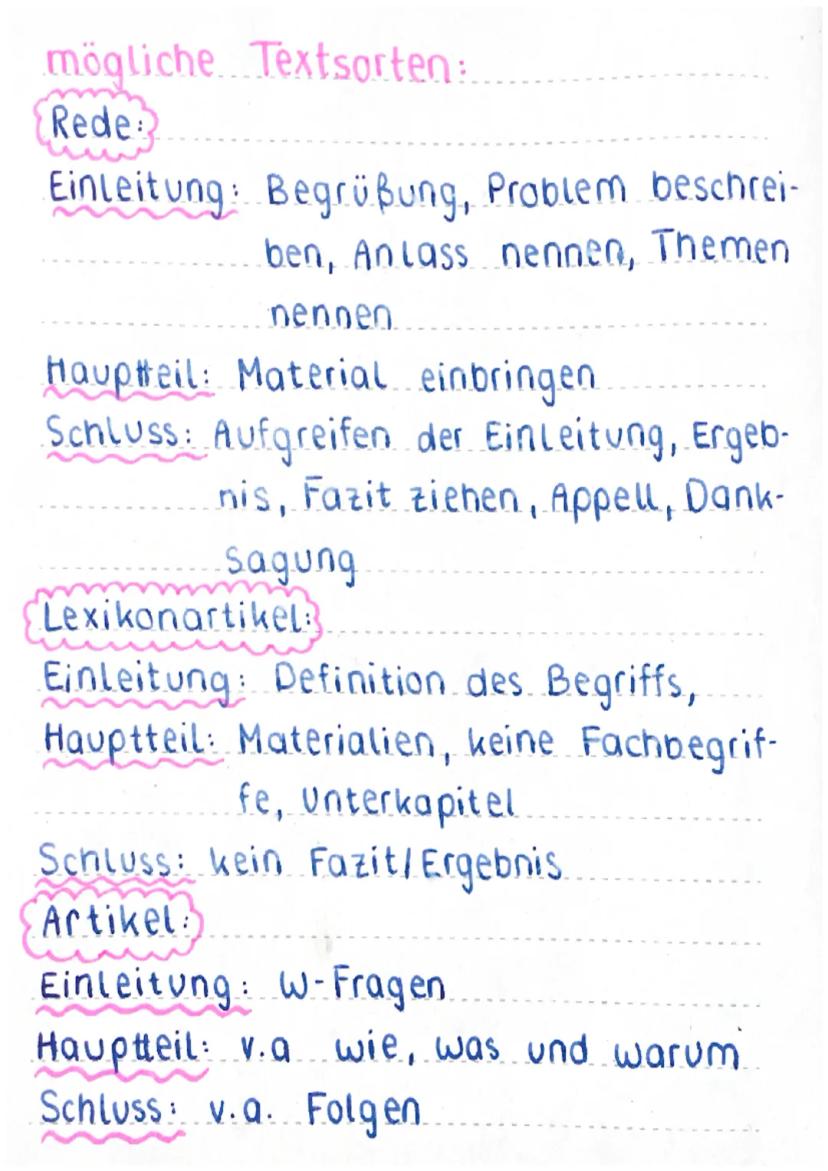 mögliche Textsorten:
Rede:
Einleitung: Begrüßung, Problem beschrei-
ben, Anlass nennen, Themen
nennen
Hauptteil: Material einbringen
Schluss: Aufgreifen der Einleitung, Ergeb-
nis, Fazit ziehen, Appell, Dank-
sagung
Lexikonartikel:
Einleitung: Definition des Begriffs,
Hauptteil: Materialien, keine Fachbegrif-
fe, Unterkapitel
Schluss: kein Fazit/Ergebnis
Artikel:
Einleitung: W-Fragen
Hauptteil: v.a wie, was und warum
Schluss: v.a. Folgen